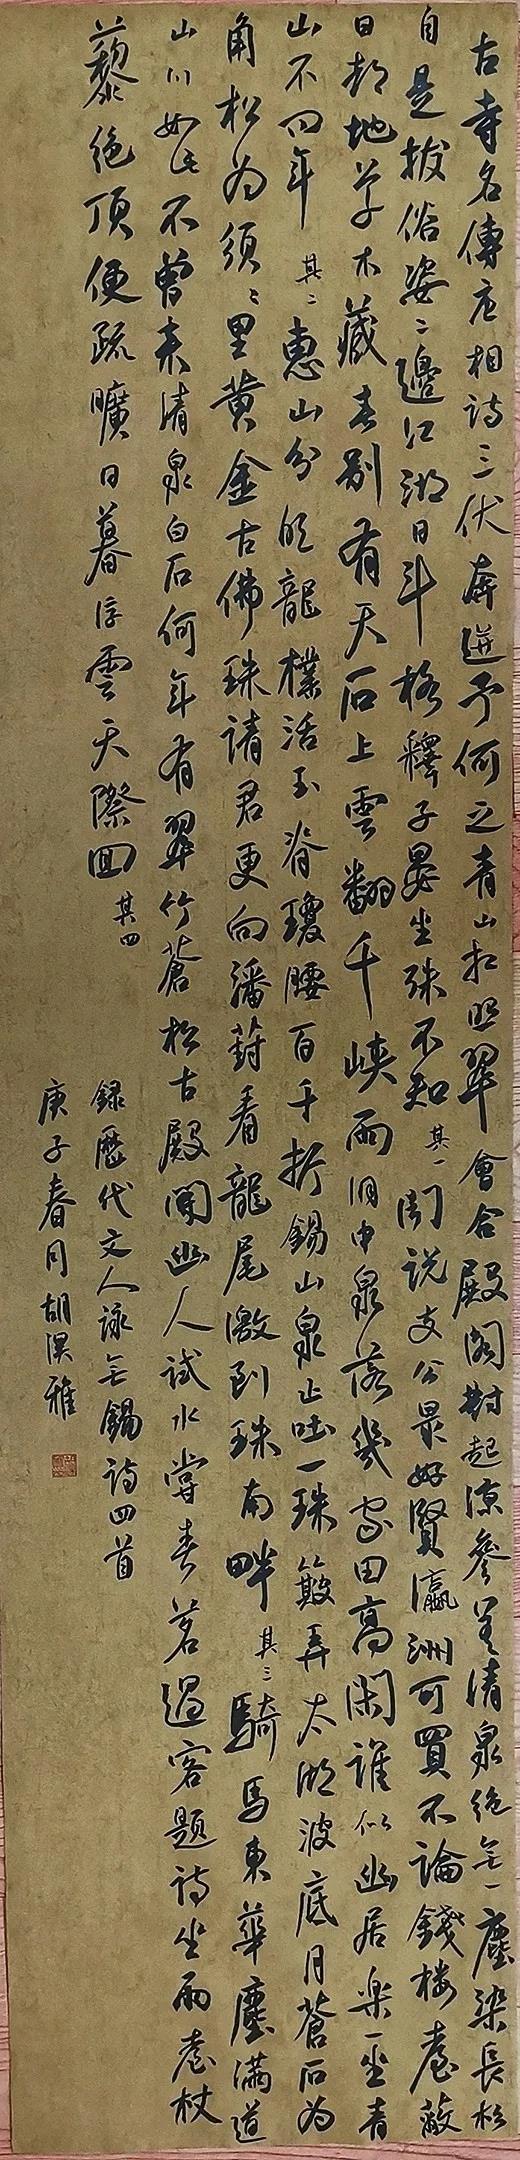 古寺名傳丞相詩三伏奔迸予何之青山扣照翠會合殿閣對起涼參差清泉絕無一塵染長松
自是拔俗姿二邊江湖日斗格釋子晏坐殊不知其一聞說支公最好賢瀛洲可買不論錢樓臺蔽
日都地草木藏春別有天石上雲翻千峽雨洞中泉落幾家田高閑誰似幽居樂一坐青
山不四年其二惠山分明龍樸活玉脊瓊腰百千折錫山泉止吐一珠簸弄太湖波底月蒼石為
角松為須須里黃金古佛珠請君更向潘葑看龍尾激到珠南畔其三騎馬東華塵滿道
山川如此不曾來清泉白石何年有翠竹蒼松古殿開幽人試水嘗春茗過客題詩坐雨臺杖
藜絕頂便疏曠日暮浮雲天際回其四
錄歷代文人詠無錫詩四首
庚子春月胡淏雅